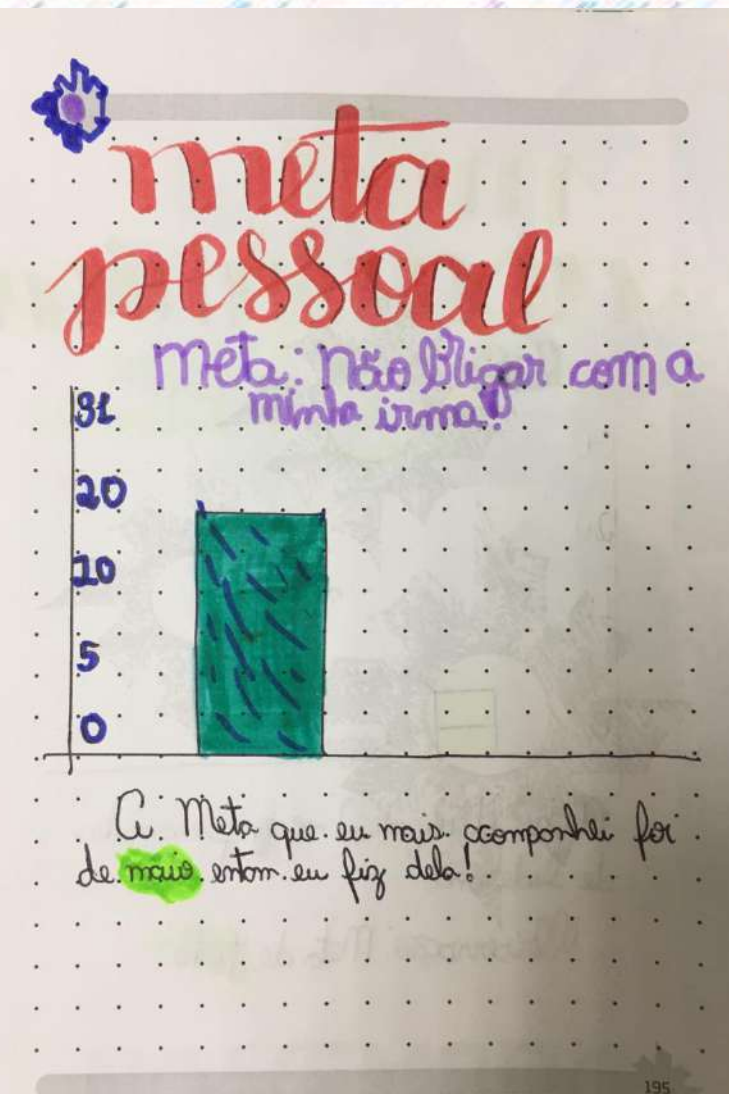 meta
pessoal
Meta: Não brigar com a
minha irma!
31
20
10
5
0
A Meta que eu mais acompanhei foi
de maio entam eu fiz dela!
195